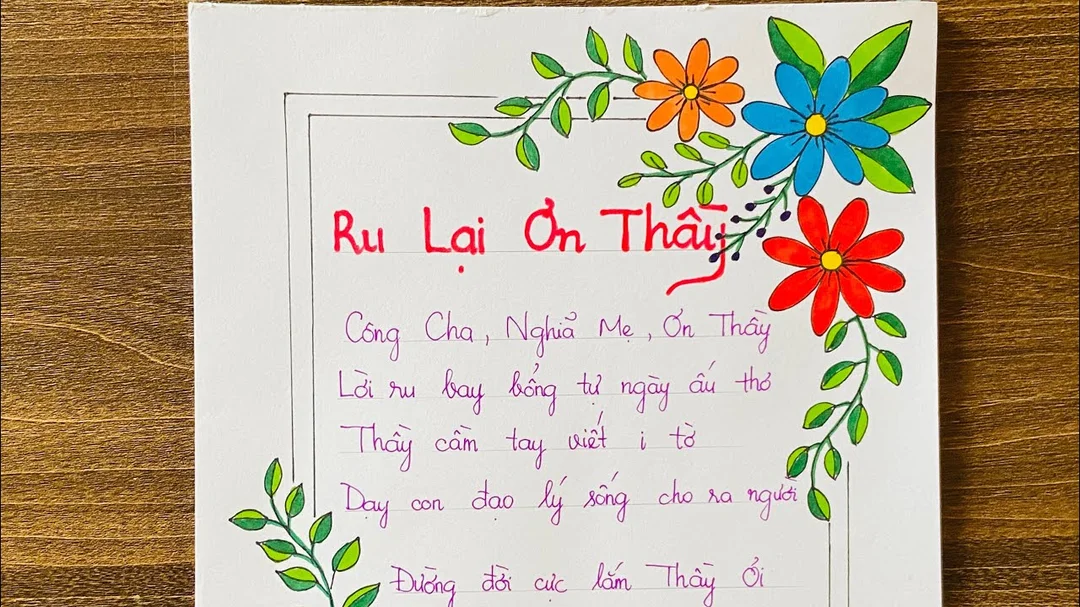 Ru Lại Ơn Thầy
Công Cha, Nghiả Mẹ, Ơn Thầy
Lời ru bay bổng tự ngày ấu thơ
Thầy cầm tay viết i tờ
Dạy con đạo lý sống cho ra người
Đường đời cực lắm Thầy Ỏi